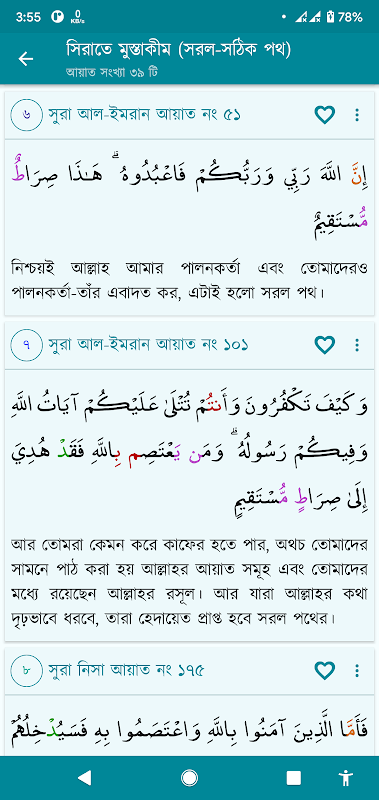 3:55 0 KB/s 78%
সিরাতে মুস্তাকীম (সরল-সঠিক পথ)
আয়াত সংখ্যা ৩৯ টি
৬ সুরা আল-ইমরান আয়াত নং ৫১
إِنَّ اللَّهَ رَبِّي وَرَبُّكُمْ فَاعْبُدُوهُ ۗ هَـٰذَا صِرَاطٌ
مُّسْتَقِيمٌ
নিশ্চয়ই আল্লাহ আমার পালনকর্তা এবং তোমাদেরও
পালনকর্তা-তাঁর এবাদত কর, এটাই হলো সরল পথ।
৭ সুরা আল-ইমরান আয়াত নং ১০১
وَكَيْفَ تَكْفُرُونَ وَأَنتُمْ تُتْلَىٰ عَلَيْكُمْ آيَاتُ اللَّهِ
وَفِيكُمْ رَسُولُهُ ۗ وَمَن يَعْتَصِم بِاللَّهِ فَقَدْ هُدِيَ
إِلَىٰ صِرَاطٍ مُّسْتَقِيمٍ
আর তোমরা কেমন করে কাফের হতে পার, অথচ তোমাদের
সামনে পাঠ করা হয় আল্লাহর আয়াত সমূহ এবং তোমাদের
মধ্যে রয়েছেন আল্লাহর রসূল। আর যারা আল্লাহর কথা
দৃঢ়ভাবে ধরবে, তারা হেদায়েত প্রাপ্ত হবে সরল পথের।
৮ সুরা নিসা আয়াত নং ১৭৫
فَأَمَّا الَّذِينَ آمَنُوا بِاللَّهِ وَاعْتَصَمُوا بِهِ فَسَيُدْخِلُهُمْ